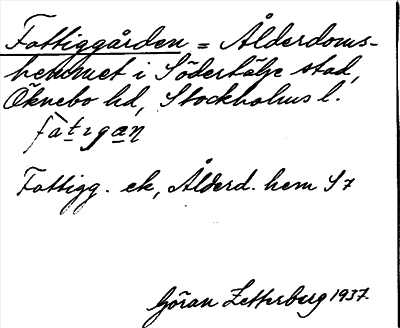 Fattiggården = Ålderdoms-
hemmet i Södertälje stad,
Öknebo hd, Stockholms l.
Fattigg. ek, Ålderd. hem S7
Göran Zetterberg 1937.